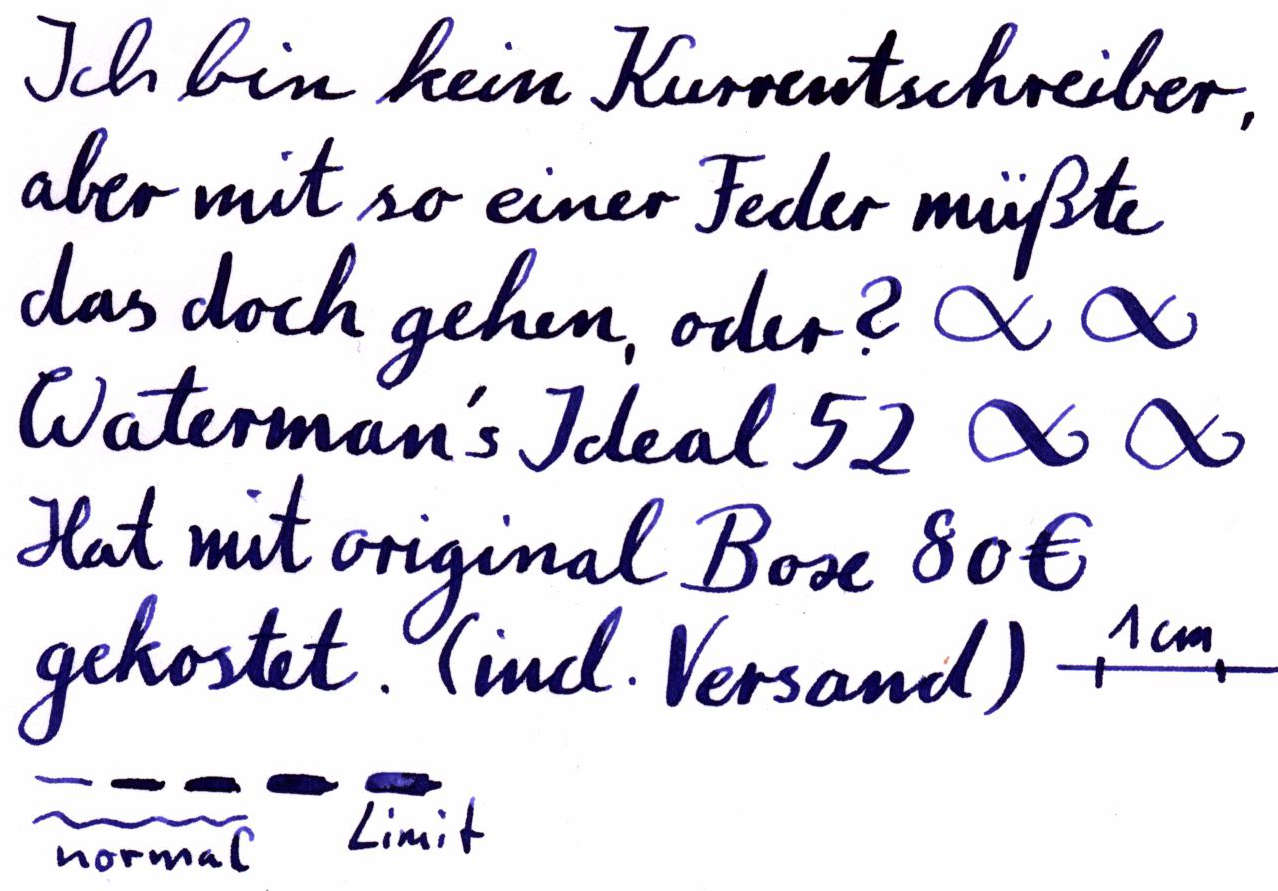 Ich bin kein Kurrentschreiber,
aber mit so einer Feder müßte
das doch gehen, oder?
Waterman's Ideal 52
Hat mit original Boxe 80€
gekostet. (incl. Versand)
1cm
normal Limit